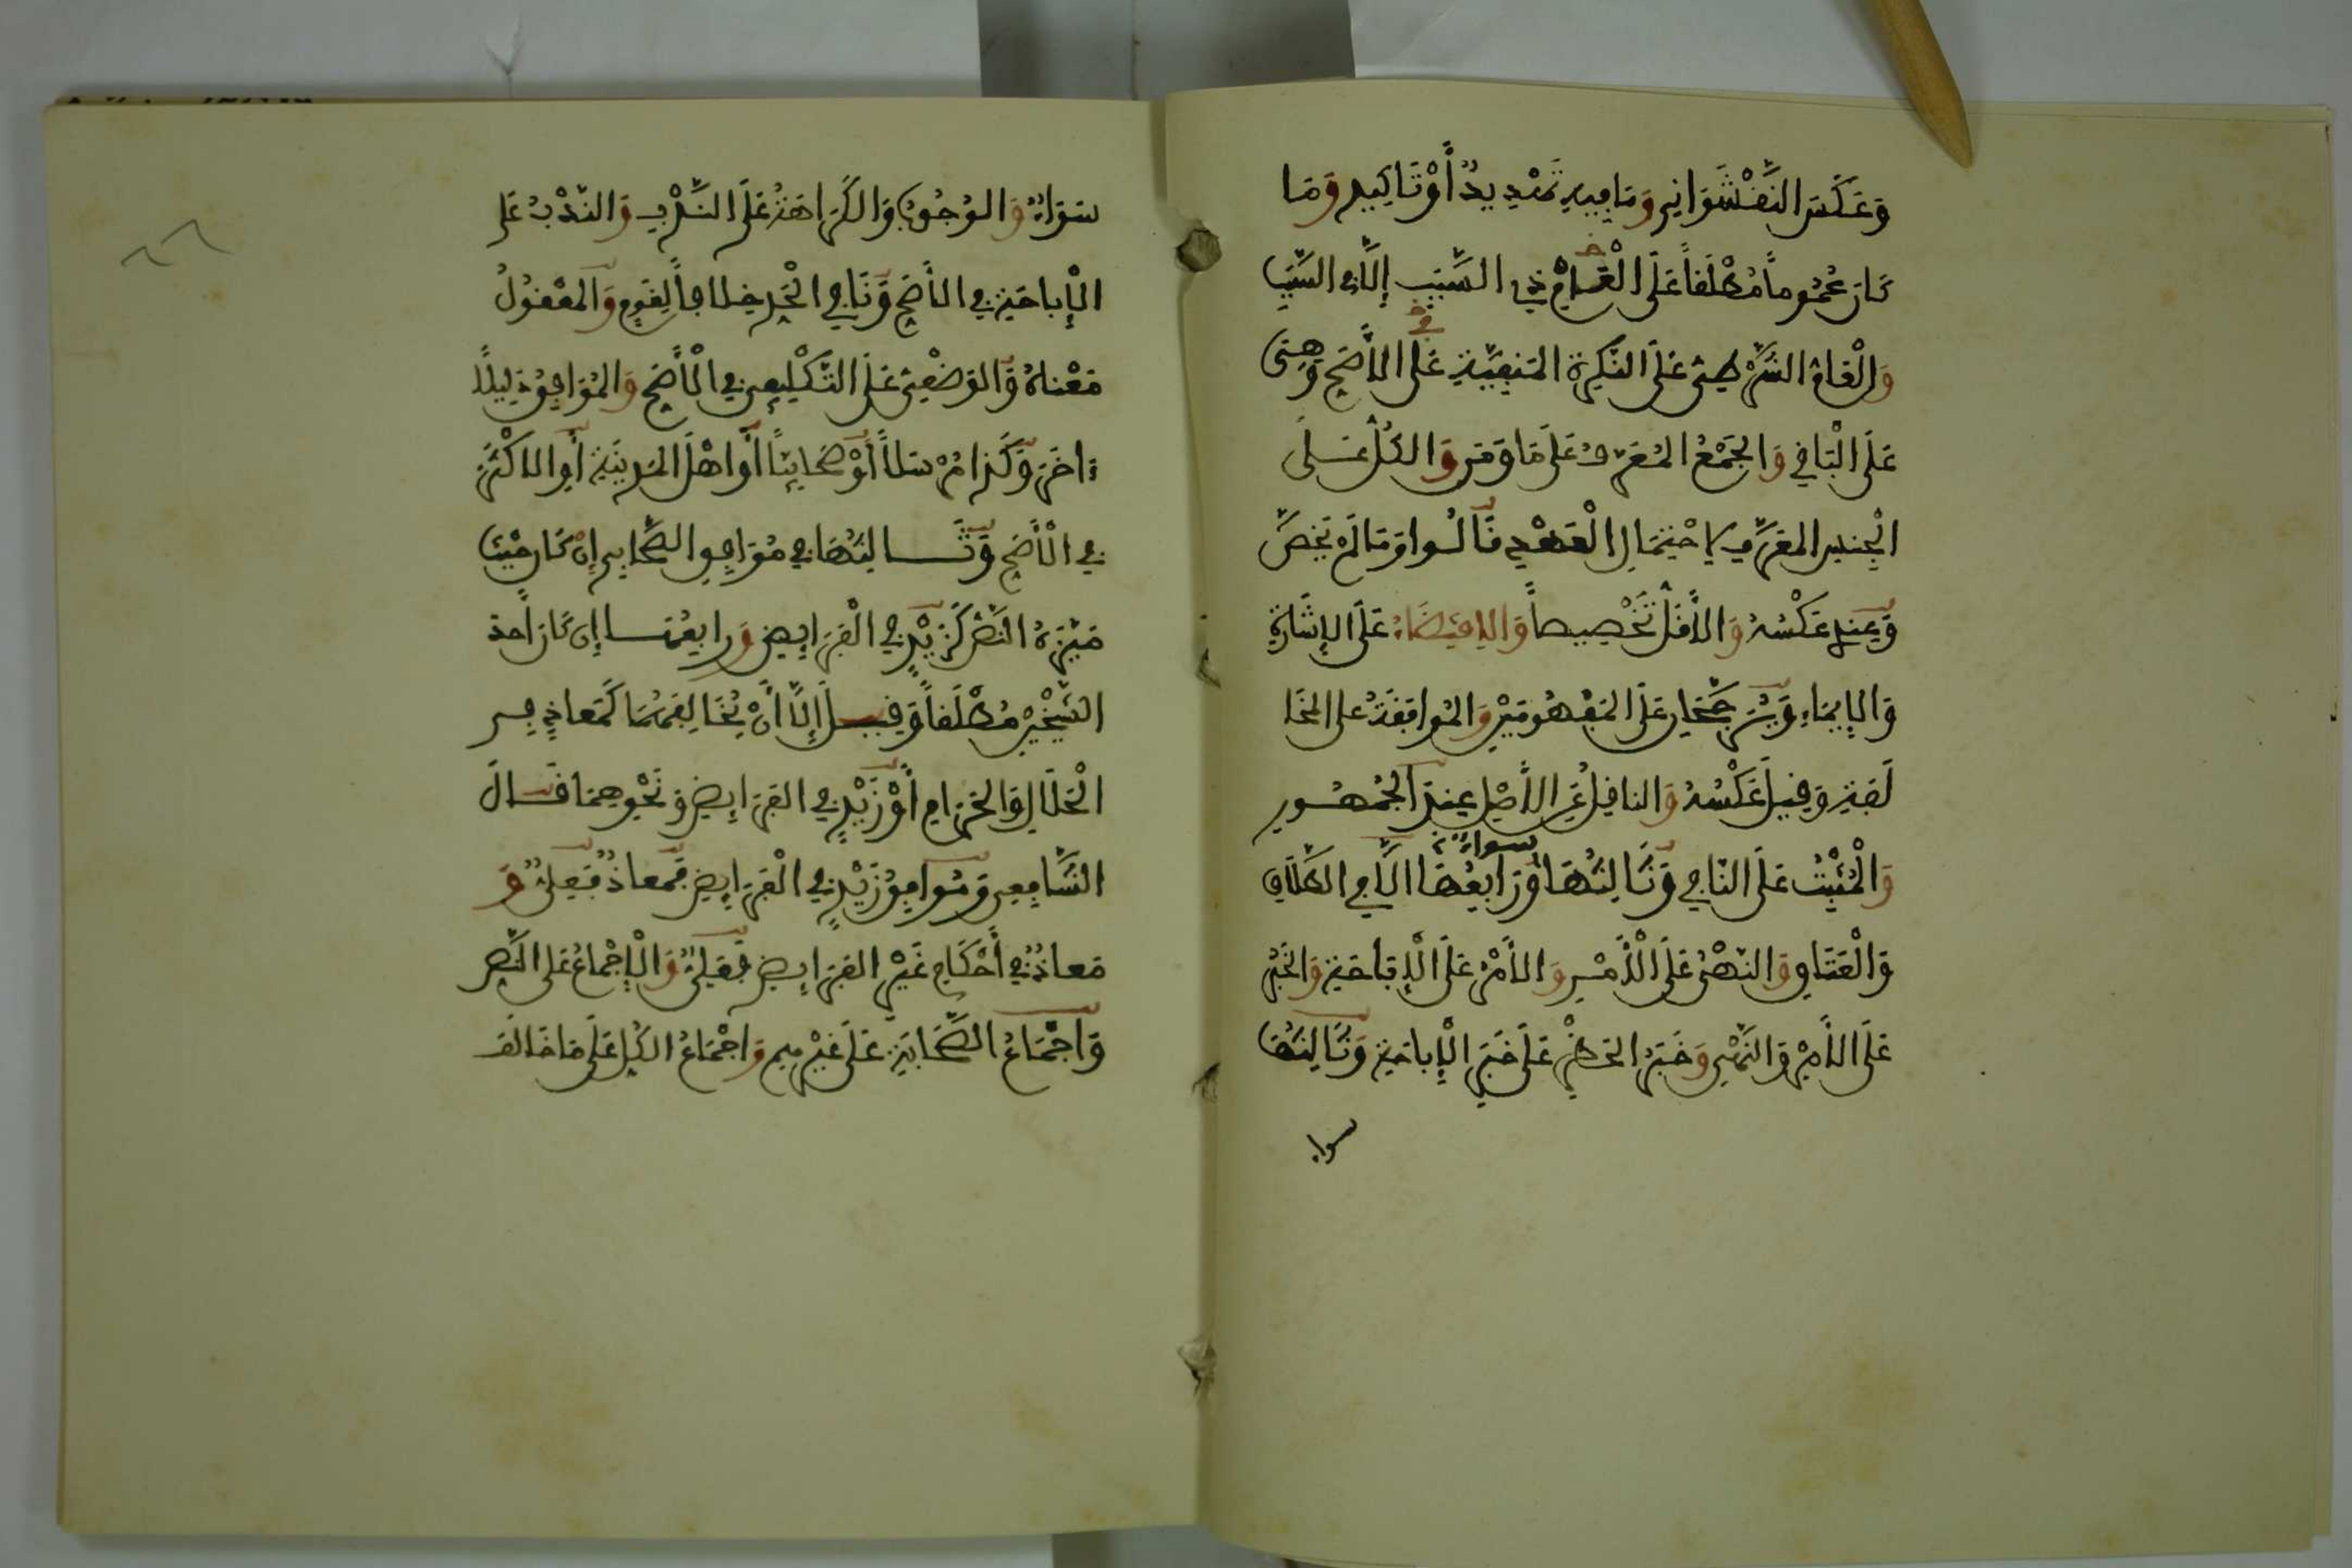 وَعَكَسَ النَّقْشَوَانِي وَمَا فِيهِ تَهْدِيدٌ أَوْ تَاكِيدٌ وَمَا
كَانَ عُمُوماً مُطْلَقاً عَلَى الْعَامِّ ذِي السَّبَبِ إِلَّا فِي السَّبَبِ
وَالْعَامُّ الشَّرْطِيُّ عَلَى النَّكِرَةِ المَنفِيَّةِ عَلَى الْأَصَحِّ وَهِيَ
عَلَى الْبَاقِي وَالْجَمْعُ الْمُعَرَّفُ عَلَى مَا وَمَن وَالكُلُّ عَلَى
الْجِنسِ المعَرَّفِ لِاحْتِمَالِ الْعَهْدِ قَالُوا وَمَا لَمْ يُخَصَّ
وَعِندِي عَكْسُهُ وَالْأَقَلُّ تَخْصِيصاً وَالِاقْتِضَاءُ عَلَى الْإِشَارَةِ
وَالْإِيمَاءِ وَيُرَجَّحَانِ عَلَى المَفْهُومَيْنِ وَالْمُوَافَقَةُ عَلَى المُخَا
لَفَةِ وَقِيلَ عَكْسُهُ وَالنَّاقِلُ عَنِ الْأَصْلِ عِندَ الْجُمْهُورِ
وَالْمُثْبِتُ عَلَى النَّافِي وَثَالِثُهَا سَوَاءٌ وَرَابِعُهَا إِلَّا فِي الطَّلَاقِ
وَالْعَتَاقِ وَالنَّهْيُ عَلَى الْأَمْرِ وَالْأَمْرُ عَلَى الْإِبَاحَةِ وَالْخَبَرُ
عَلَى الْأَمْرِ وَالنَّهْيِ وَخَبَرُ الْحَظْرِ عَلَى خَبَرِ الْإِبَاحَةِ وَثَالِثُهَا
سواء
سَوَاءٌ وَالْوُجُوبُ وَالْكَرَاهَةُ عَلَى النَّدْبِ وَالنَّدْبُ عَلَى
الْإِبَاحَةِ فِي الْأَصَحِّ وَنَافِي الْحَدِّ خِلَافاً لِقَوْمٍ وَالمَعْقُولُ
مَعْنَاهُ وَالْوَضْعِيُّ عَلَى التَّكْلِيفِيِّ فِي الْأَصَحِّ وَالْمُوَافِقُ دَلِيلًا
ءَاخَرَ وَكَذَا مُرْسَلًا أَوْ صَحَابِيّاً أَوْ أَهْلَ الْمَدِينَةِ أَوِ الْأَكْثَرَ
فِي الْأَصَحِّ وَثَالِثُهَا فِي مُوَافِقِ الصَّحَابِيِّ إِنْ كَانَ حَيْثُ
مَيَّزَهُ النَّصُّ كَزَيْدٍ فِي الْفَرَائِضِ وَرَابِعُهَا إِنْ كَانَ أَحَدَ
الشَّيْخَيْنِ مُطْلَقاً وَقِيلَ إِلَّا أَنْ يُخَالِفَهُمَا كَمُعَاذٍ فِي
الْحَلَالِ وَالْحَرَامِ أَوْ زَيْدٍ فِي الْفَرَائِضِ وَنَحْوِهِمَا قَالَ
الشَّافِعِي وَمُوَافِقُ زَيْدٍ فِي الْفَرَائِضِ فَمُعَاذٌ فَعَلِيٌّ وَ
مُعَاذٌ فِي أَحْكَامِ غَيْرِ الْفَرَائِضِ فَعَلِيٌّ وَالْإِجْمَاعُ عَلَى النَّصِّ
وَإِجْمَاعُ الصَّحَابَةِ عَلَى غَيْرِهِمْ وَإِجْمَاعُ الْكُلِّ عَلَى مَا خَالَفَ